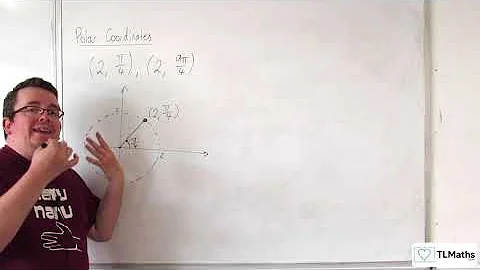 Polar Coordinates
(2, π/4), (2, 9π/4)
(2, π/4)
2
TLMaths